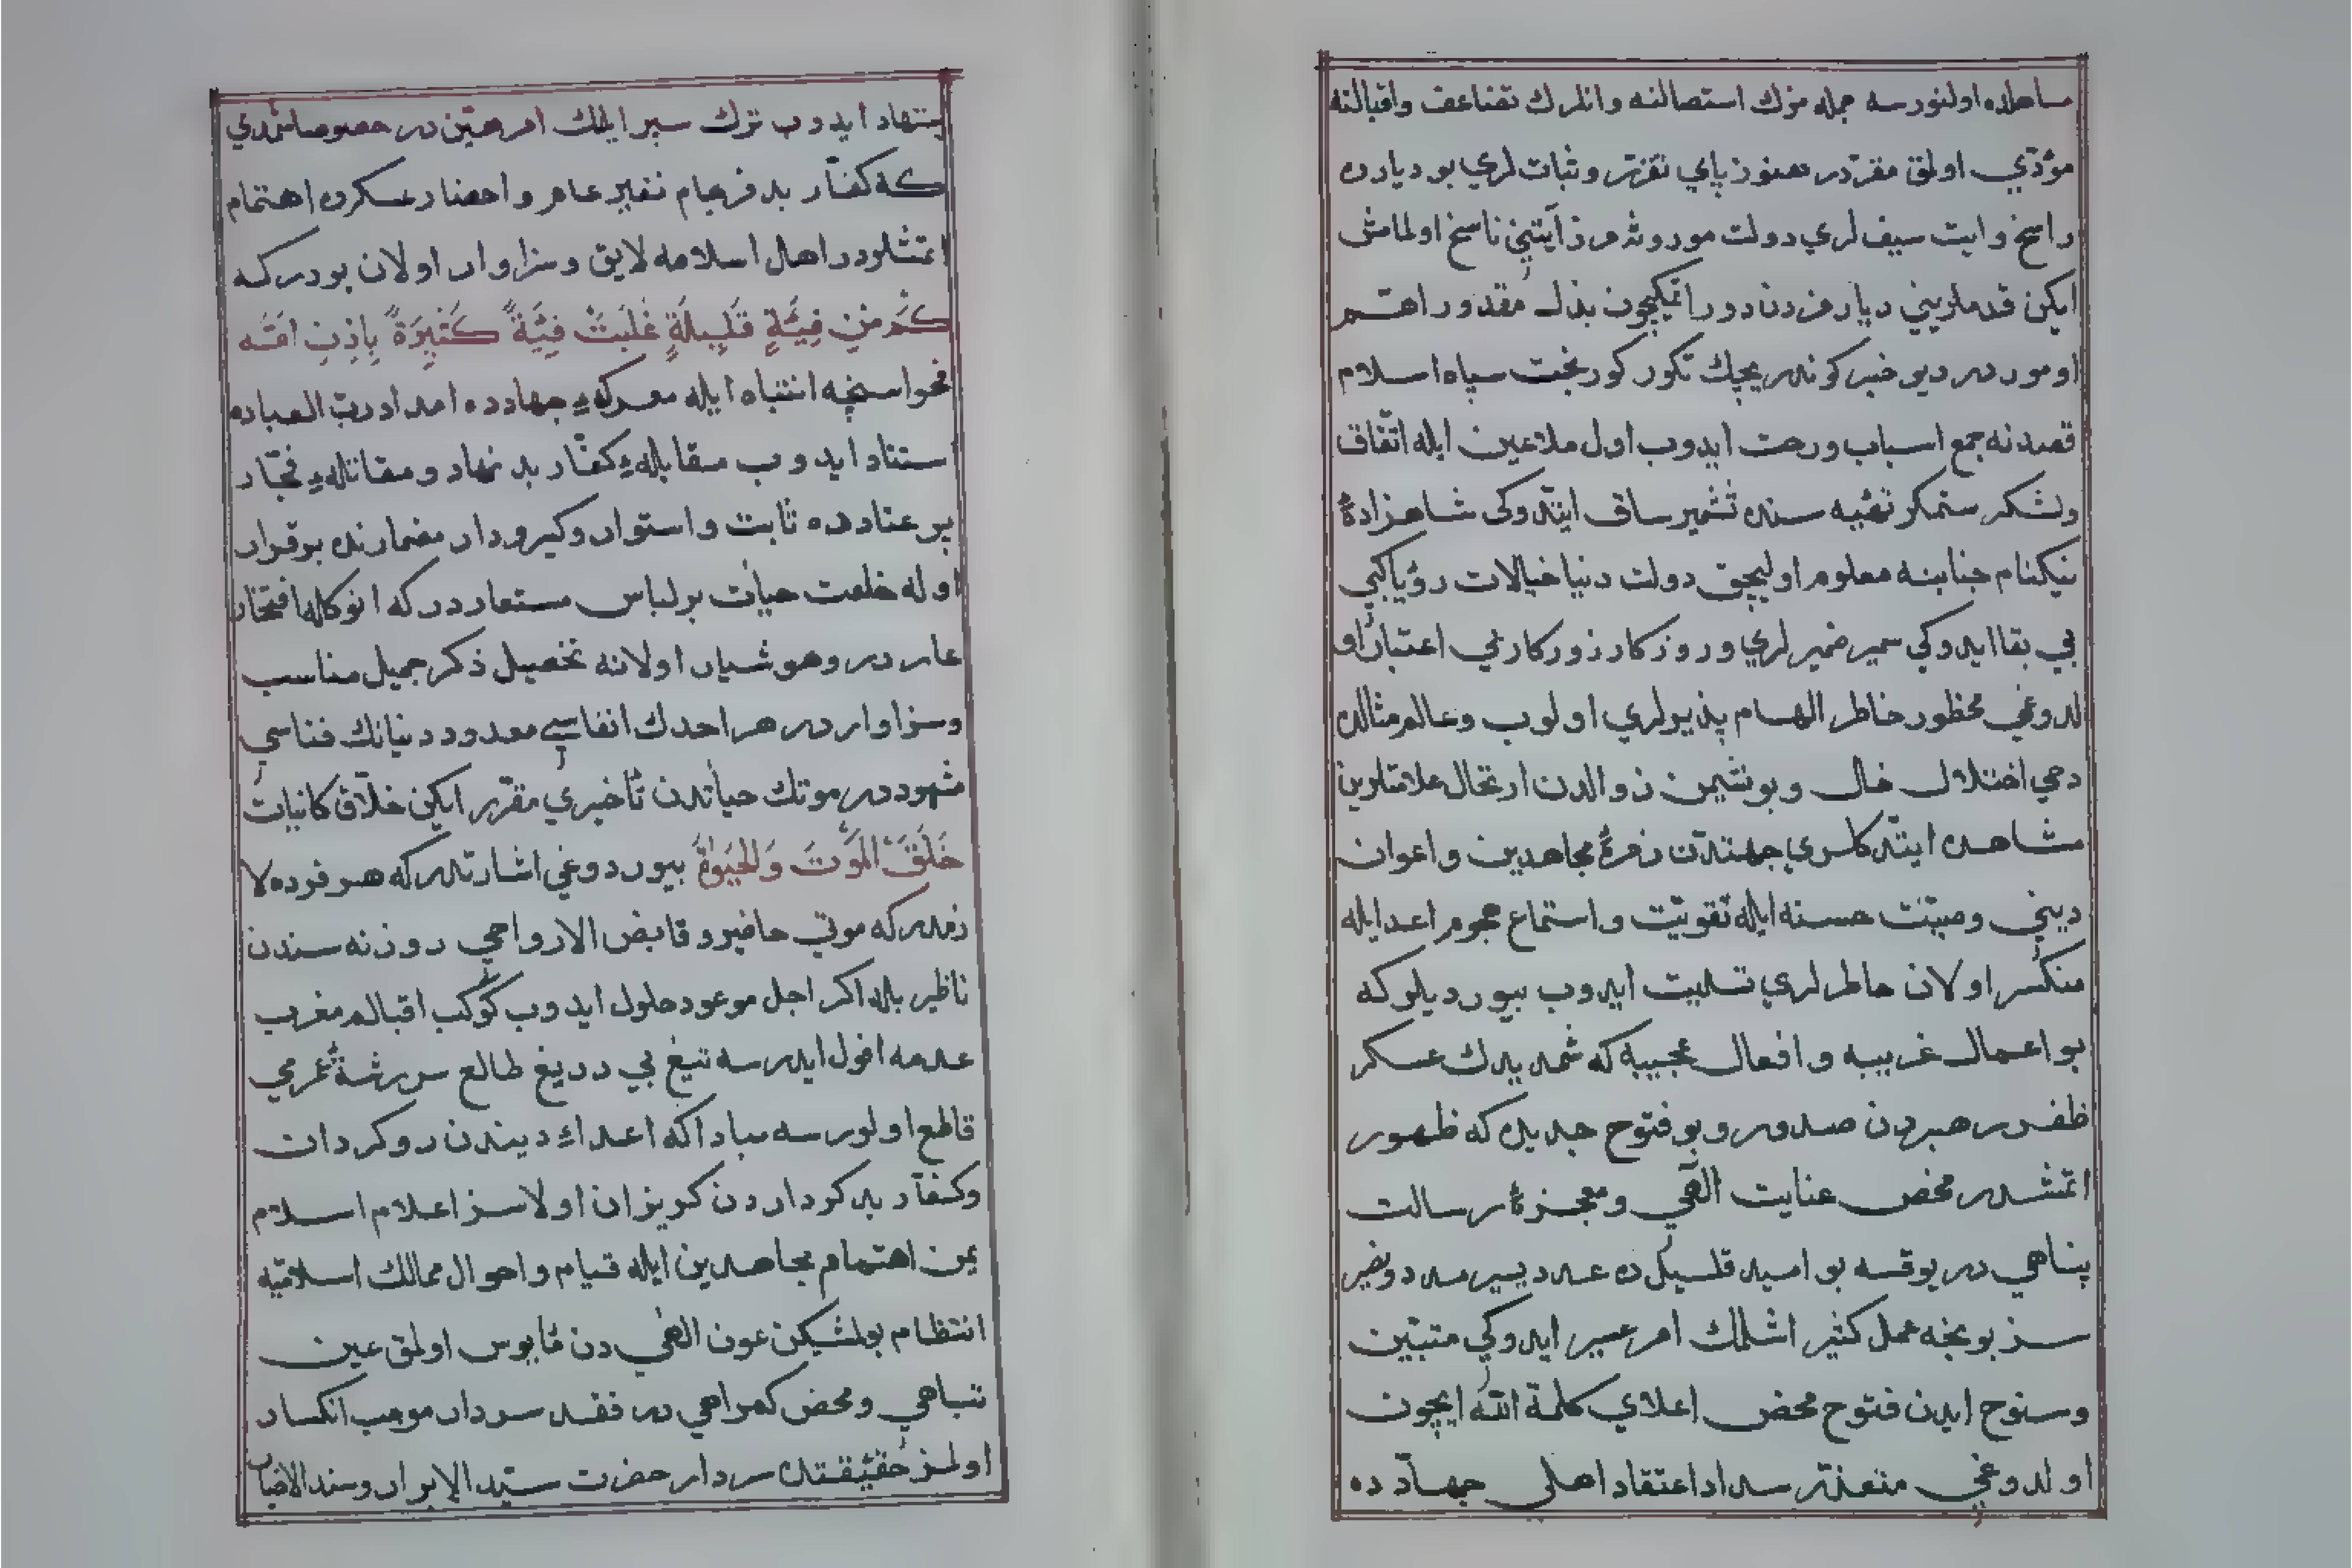 مساهله اولنورسه جمله مزك استصالنه وانلرك تضاعف واقبالنه
مؤدّي اولمق مقرّدر هنوز پاي تقرّر وثبات لري بو دیارده
راسخ وایت سیف لري دولت موروثه مز آیتني ناسخ اولمامش
ایکن قدملریني دیارمزدن دور اتمکیچون بذل مقدور اهمّ
اموردر دیو خبر کوندریجك تکور کوربخت سپاه اسلام
قصدنه جمع اسباب ورخت ایدوب اول ملاعین ایله اتّفاق
ولشکر ستمکر تعبیه سنه تشمیر ساق ایتدوکی شاهزادۀ
نیکنام جنابنه معلوم اولیجق دولت دنیا خیالات رؤیا کبي
بي بقا ایدوکي سمیر ضمیرلري وروزکار زورکارني اعتبار او
لدوغي محظور خاطر الهام پذیرلري اولوب وعالم مثالده
دخي اختلال حال وبو نشیمن زوالدن ارتحال علامتلرین
مشاهده ایتدکلري جهتدن زمرۀ مجاهدین واعوان
دیني وصیّت حسنه ایله تقویّت واستماع هجوم اعدا ایله
منکسر اولان خاطرلري تسلیت ایدوب بیوردیلر که
بو اعمال غریبه وافعال عجیبه که شمدیدك عسکر
ظفر رهبردن صدور وبو فتوح جدیده که ظهور
اتمشدر محض عنایت الهي ومعجزۀ رسالت
پناهي در یوقسه بو امید قلیل ده عدد یسیر مدد ونصیر
سز بونجه عمل کثیر اشلمك امر عسیر ایدوکي متبیّن
وسنوح ایدن فتوح محض اعلاي کلمة الله ایچون
اولدوغي متعیّندر سداد اعتقاد اهلی جهادّ ده
ستهاد ایدوب ترك سیر ایلمك امر هیّن در خصوصا شمدي
که کفّار بد فرجام نفیر عام واحضار عسکرده اهتمام
اتمشلردر اهل اسلامه لایق وسزاوار اولان بودر که
كَمْ مِنْ فِئَةٍ قَلِيلَةٍ غَلَبَتْ فِئَةً كَثِيرَةً بِاِذْنِ اللّٰه
فحواسنجه انتباه ایله معرکۀ جهادده امداد ربّ العباده
استناد ایدوب مقابلۀ کفّار بد نهاد ومقاتلۀ فجّار
بر عنادده ثابت واستوار وکیرودار مضمارنده برقرار
اوله خلعت حیات بر لباس مستعاردر که انوکله افتخار
عاردر وهوشیار اولانه تحصیل ذکر جمیل مناسب
وسزاواردر هر احدك انفاسي معدود دنیانك فناسي
مشهوددر موتك حیاتدن تأخیري مقرّر ایکن خلّاق کائنات
خَلَقَ الْمَوْتَ وَالْحَيٰوةَ بیوردوغي اشارتدر که هر فرده لا
زمدر که موتي حاضر وقابض الارواحي روزنه سندن
ناظر بله اکر اجل موعود حلول ایدوب کوکب اقبالم مغرب
عدمه افول ایدرسه تیغ بي دریغ طالع سررشتۀ عمرمي
قاطع اولورسه مبادا که اعداء دیندن روکردان
وکفّار بد کرداردن کریزان اولاسز اعلام اسلام
یمن اهتمام مجاهدین ایله قیام واحوال ممالك اسلامیّه
انتظام بولمشیکن عون الهي دن مأیوس اولمق عین
تباهي ومحض کمراهي در فقد سردار موجب انکسار
اولمز حقیقتده سردار حضرت سیّد الابرار وسند الاخیار